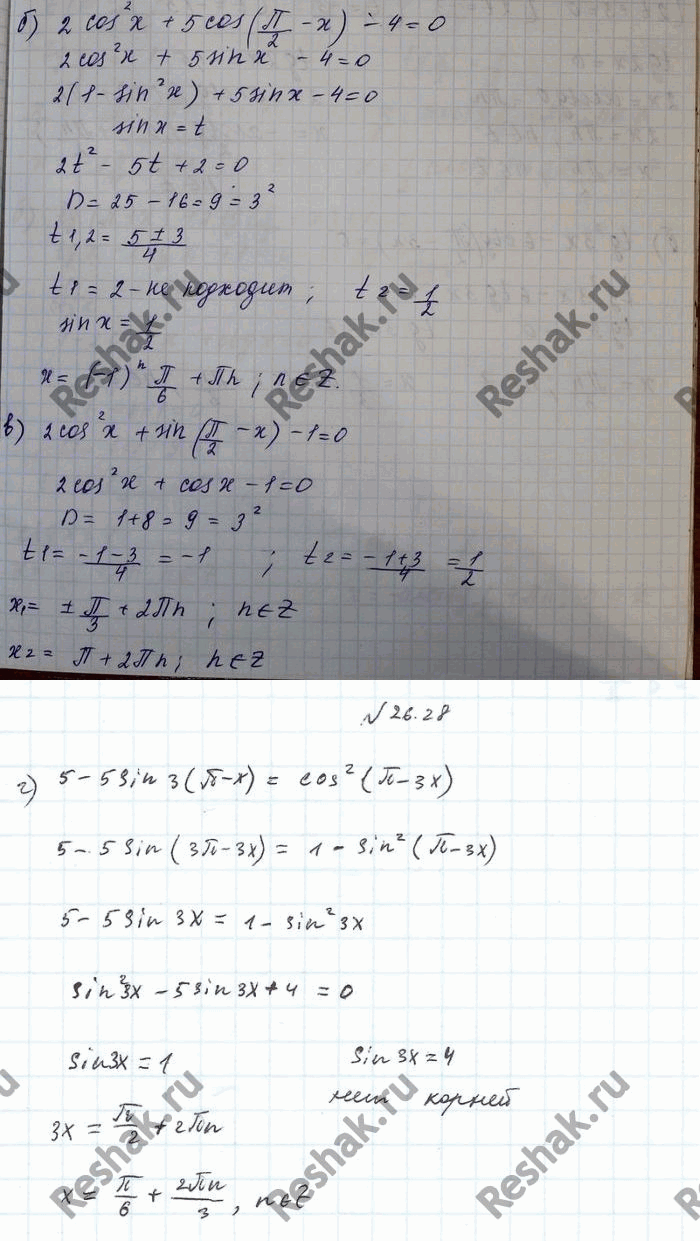 б) 2 cos²x + 5 cos(π/2 - x) - 4 = 0
2cos²x + 5sinx - 4 = 0
2(1 - sin²x) + 5sinx - 4 = 0
sinx = t
2t² - 5t + 2 = 0
D = 25 - 16 = 9 = 3²
t1,2 = (5 ± 3)/4
t1 = 2 - не подходит ; t2 = 1/2
sinx = 1/2
x = (-1)ⁿ π/6 + πn ; n ∈ Z.
в) 2cos²x + sin(π/2 - x) - 1 = 0
2cos²x + cosx - 1 = 0
D = 1 + 8 = 9 = 3²
t1 = (-1-3)/4 = -1 ; t2 = (-1+3)/4 = 1/2
x₁ = ± π/3 + 2πn ; n ∈ Z
x2 = π + 2πn ; n ∈ Z
№ 26.28
г) 5 - 5sin 3(π - x) = cos²(π - 3x)
5 - 5 sin(3π - 3x) = 1 - sin²(π - 3x)
5 - 5sin 3x = 1 - sin²3x
sin²3x - 5sin3x + 4 = 0
sin3x = 1 sin 3x = 4
нет корней
3x = π/2 + 2πn
x = π/6 + 2πn/3 , n∈Z
Reshak.ru
Reshak.ru
Reshak.ru
Reshak.ru
Reshak.ru
Reshak.ru